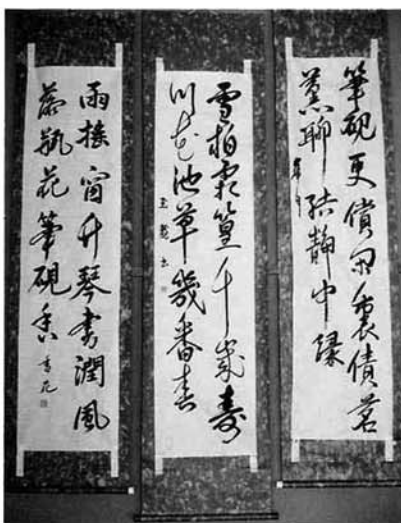 筆硯更償閑裏債茗
聊結靜中緣
雪柏霜篁千歲壽
川花池草幾番春
雨搖窗竹琴書潤風
瓶花筆硯香